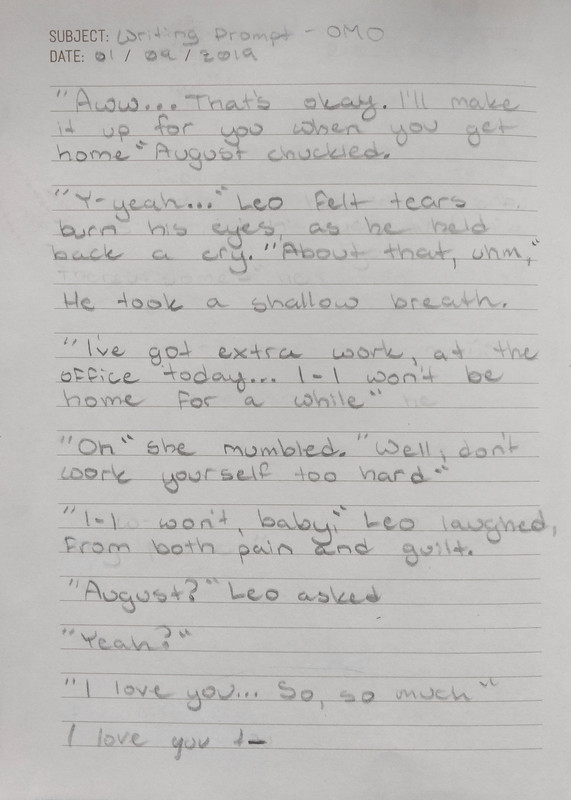 SUBJECT: Writing Prompt - OMO
DATE: 01 / 09 / 2019
"Aww... That's okay. I'll make
it up for you when you get
home" August chuckled.
"Y-yeah..." Leo felt tears
burn his eyes, as he held
back a cry. "About that, uhm,"
He took a shallow breath.
"I've got extra work, at the
office today... I-I won't be
home for a while"
"Oh" she mumbled. "Well, don't
work yourself too hard"
"I-I won't, baby," Leo laughed,
from both pain and guilt.
"August?" Leo asked
"Yeah?"
"I love you... So, so much"
I love you t-